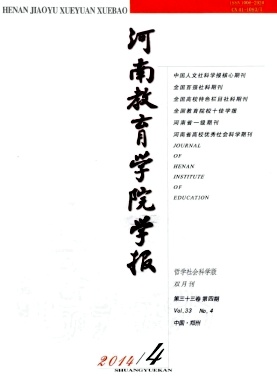 HENAN JIAOYU XUEYUAN XUEBAO
河南教育学院学报
中国人文社科学报核心期刊
全国百强社科期刊
全国高校特色栏目社科期刊
全国教育院校十佳学报
河南省一级期刊
河南省高校优秀社会科学期刊
JOURNAL
OF
HENAN
INSTITUTE
OF
EDUCATION
哲学社会科学版
双月刊
第三十三卷 第四期
Vol.33 No.4
中国·郑州
2014/4
SHUANGYUEKAN